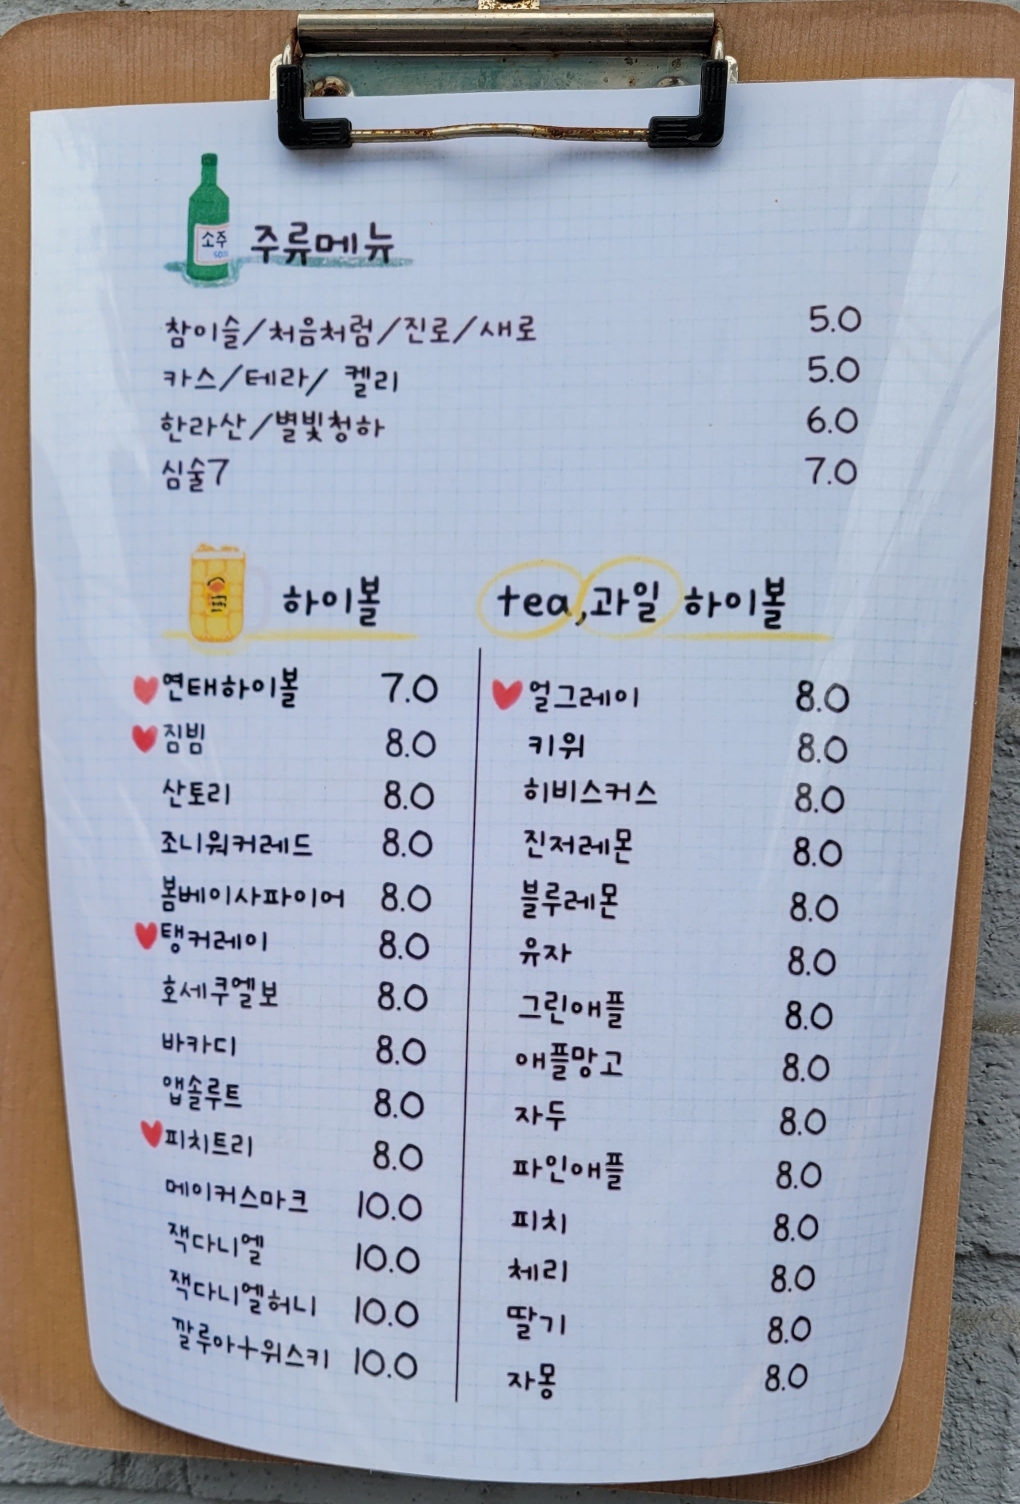 소주
주류메뉴
참이슬/처음처럼/진로/새로 5.0
카스/테라/ 켈리 5.0
한라산/별빛청하 6.0
심술7 7.0
하이볼
연태하이볼 7.0
짐빔 8.0
산토리 8.0
조니워커레드 8.0
봄베이사파이어 8.0
탱커레이 8.0
호세쿠엘보 8.0
바카디 8.0
앱솔루트 8.0
피치트리 8.0
메이커스마크 10.0
잭다니엘 10.0
잭다니엘허니 10.0
깔루아+위스키 10.0
tea,과일 하이볼
얼그레이 8.0
키위 8.0
히비스커스 8.0
진저레몬 8.0
블루레몬 8.0
유자 8.0
그린애플 8.0
애플망고 8.0
자두 8.0
파인애플 8.0
피치 8.0
체리 8.0
딸기 8.0
자몽 8.0